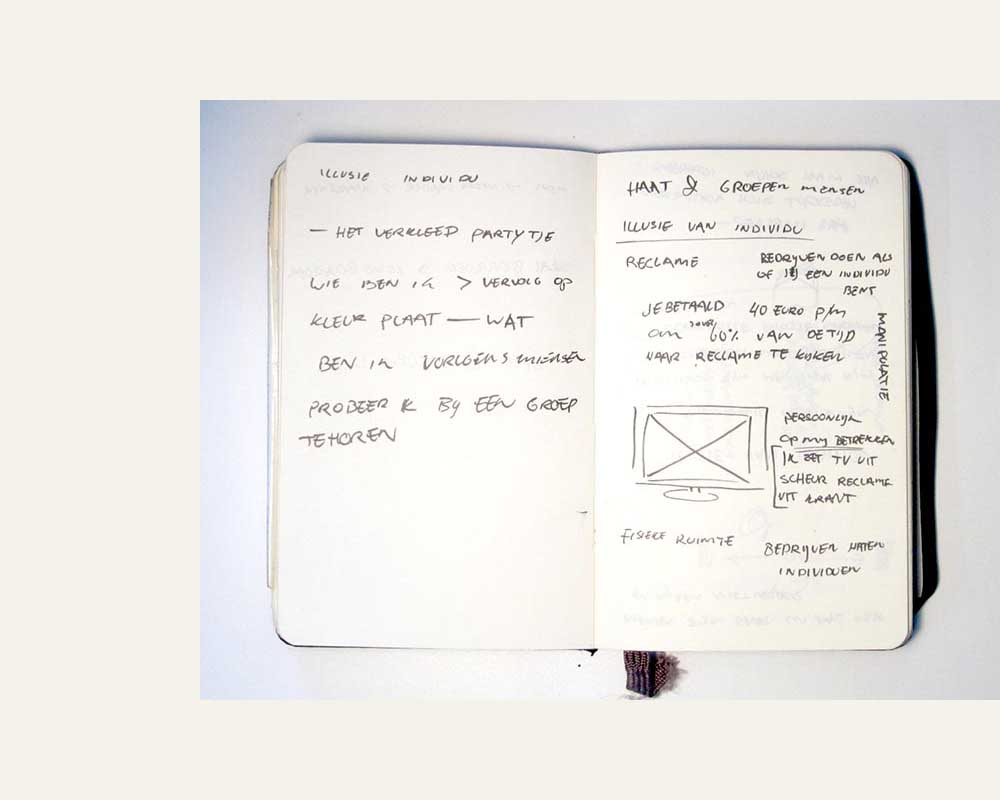 ILLUSIE INDIVIDU
— HET VERKLEED PARTYTJE
WIE BEN IK > VERVOLG OP
KLEUR PLAAT — WAT
BEN IK VOLGENS MENSEN
PROBEER IK BY EEN GROEP
TE HOREN
HAAT & GROEPEN MENSEN
ILLUSIE VAN INDIVIDU
RECLAME
BEDRIJVEN DOEN ALS
OF JIJ EEN INDIVIDU
BENT
JE BETAALD 40 EURO P/M
OM VOOR 60% VAN DE TIJD
NAAR RECLAME TE KIJKEN
MANIPULATIE
PERSOONLIJK
OP MIJ BETREKKEN
IK ZET TV UIT
SCHEUR RECLAME
UIT KRANT
FISIEKE RUIMTE
BEDRIJVEN HATEN
INDIVIDUEN